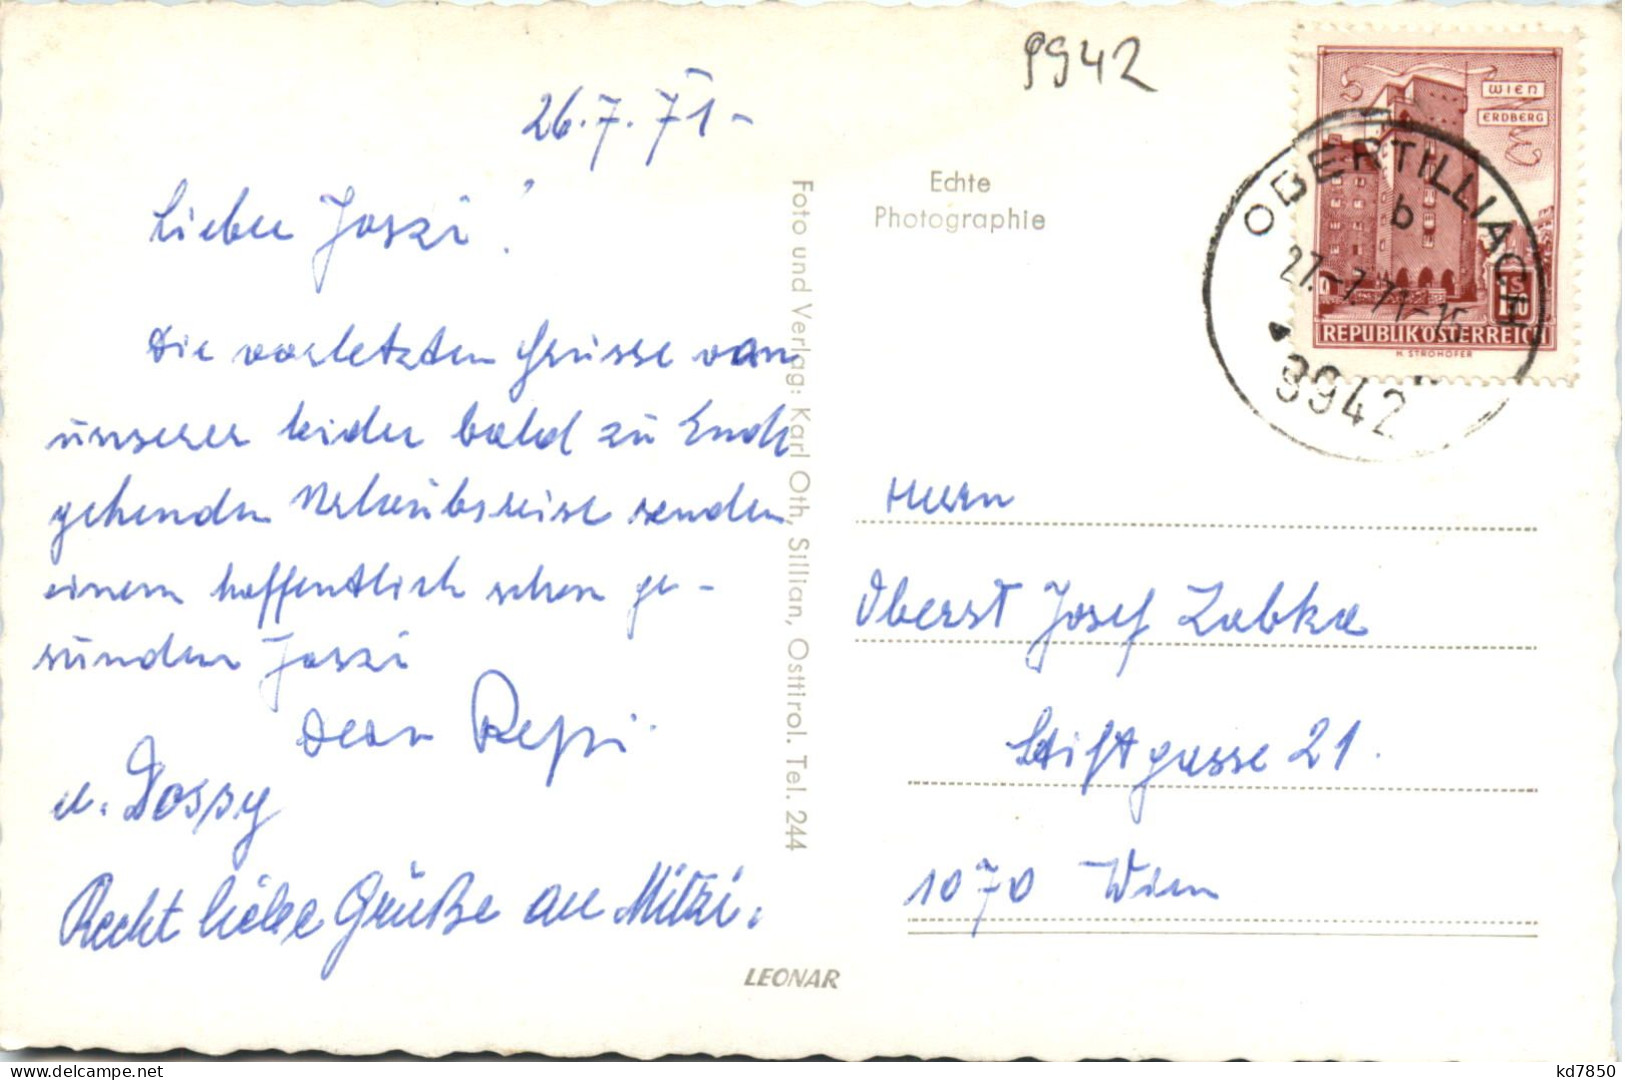 9942
26.7.71-
Lieber Joszi!
Die vorletzten Grüsse von
unserer leider bald zu Ende
gehenden Urlaubsreise senden
einem hoffentlich schon ge-
sunden Joszi
Deine Pepi
u. Dossy
Recht liebe Grüße an Mitzi.
Foto und Verlag: Karl Oth, Sillian, Osttirol. Tel. 244
LEONAR
Echte
Photographie
WIEN
ERDBERG
REPUBLIK ÖSTERREICH
H. STROHOFER
OBERTILLIACH
b
27.-7.71-15
9942
Herrn
Oberst Josef Zabka
Stiftgasse 21.
1070 Wien
kd7850